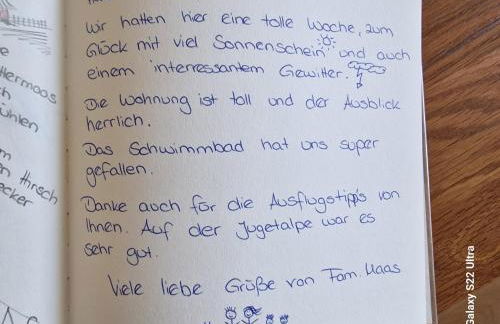 e
termoos
ch
ühlen
m
en Hirsch
ecker
Wir hatten hier eine tolle Woche, zum
Glück mit viel Sonnenschein und auch
einem interressantem Gewitter.
Die Wohnung ist toll und der Ausblick
herrlich.
Das Schwimmbad hat uns super
gefallen.
Danke auch für die Ausflugstipp's von
Ihnen. Auf der Jugetalpe war es
sehr gut.
Viele liebe Grüße von Fam. Haas
Galaxy S22 Ultra